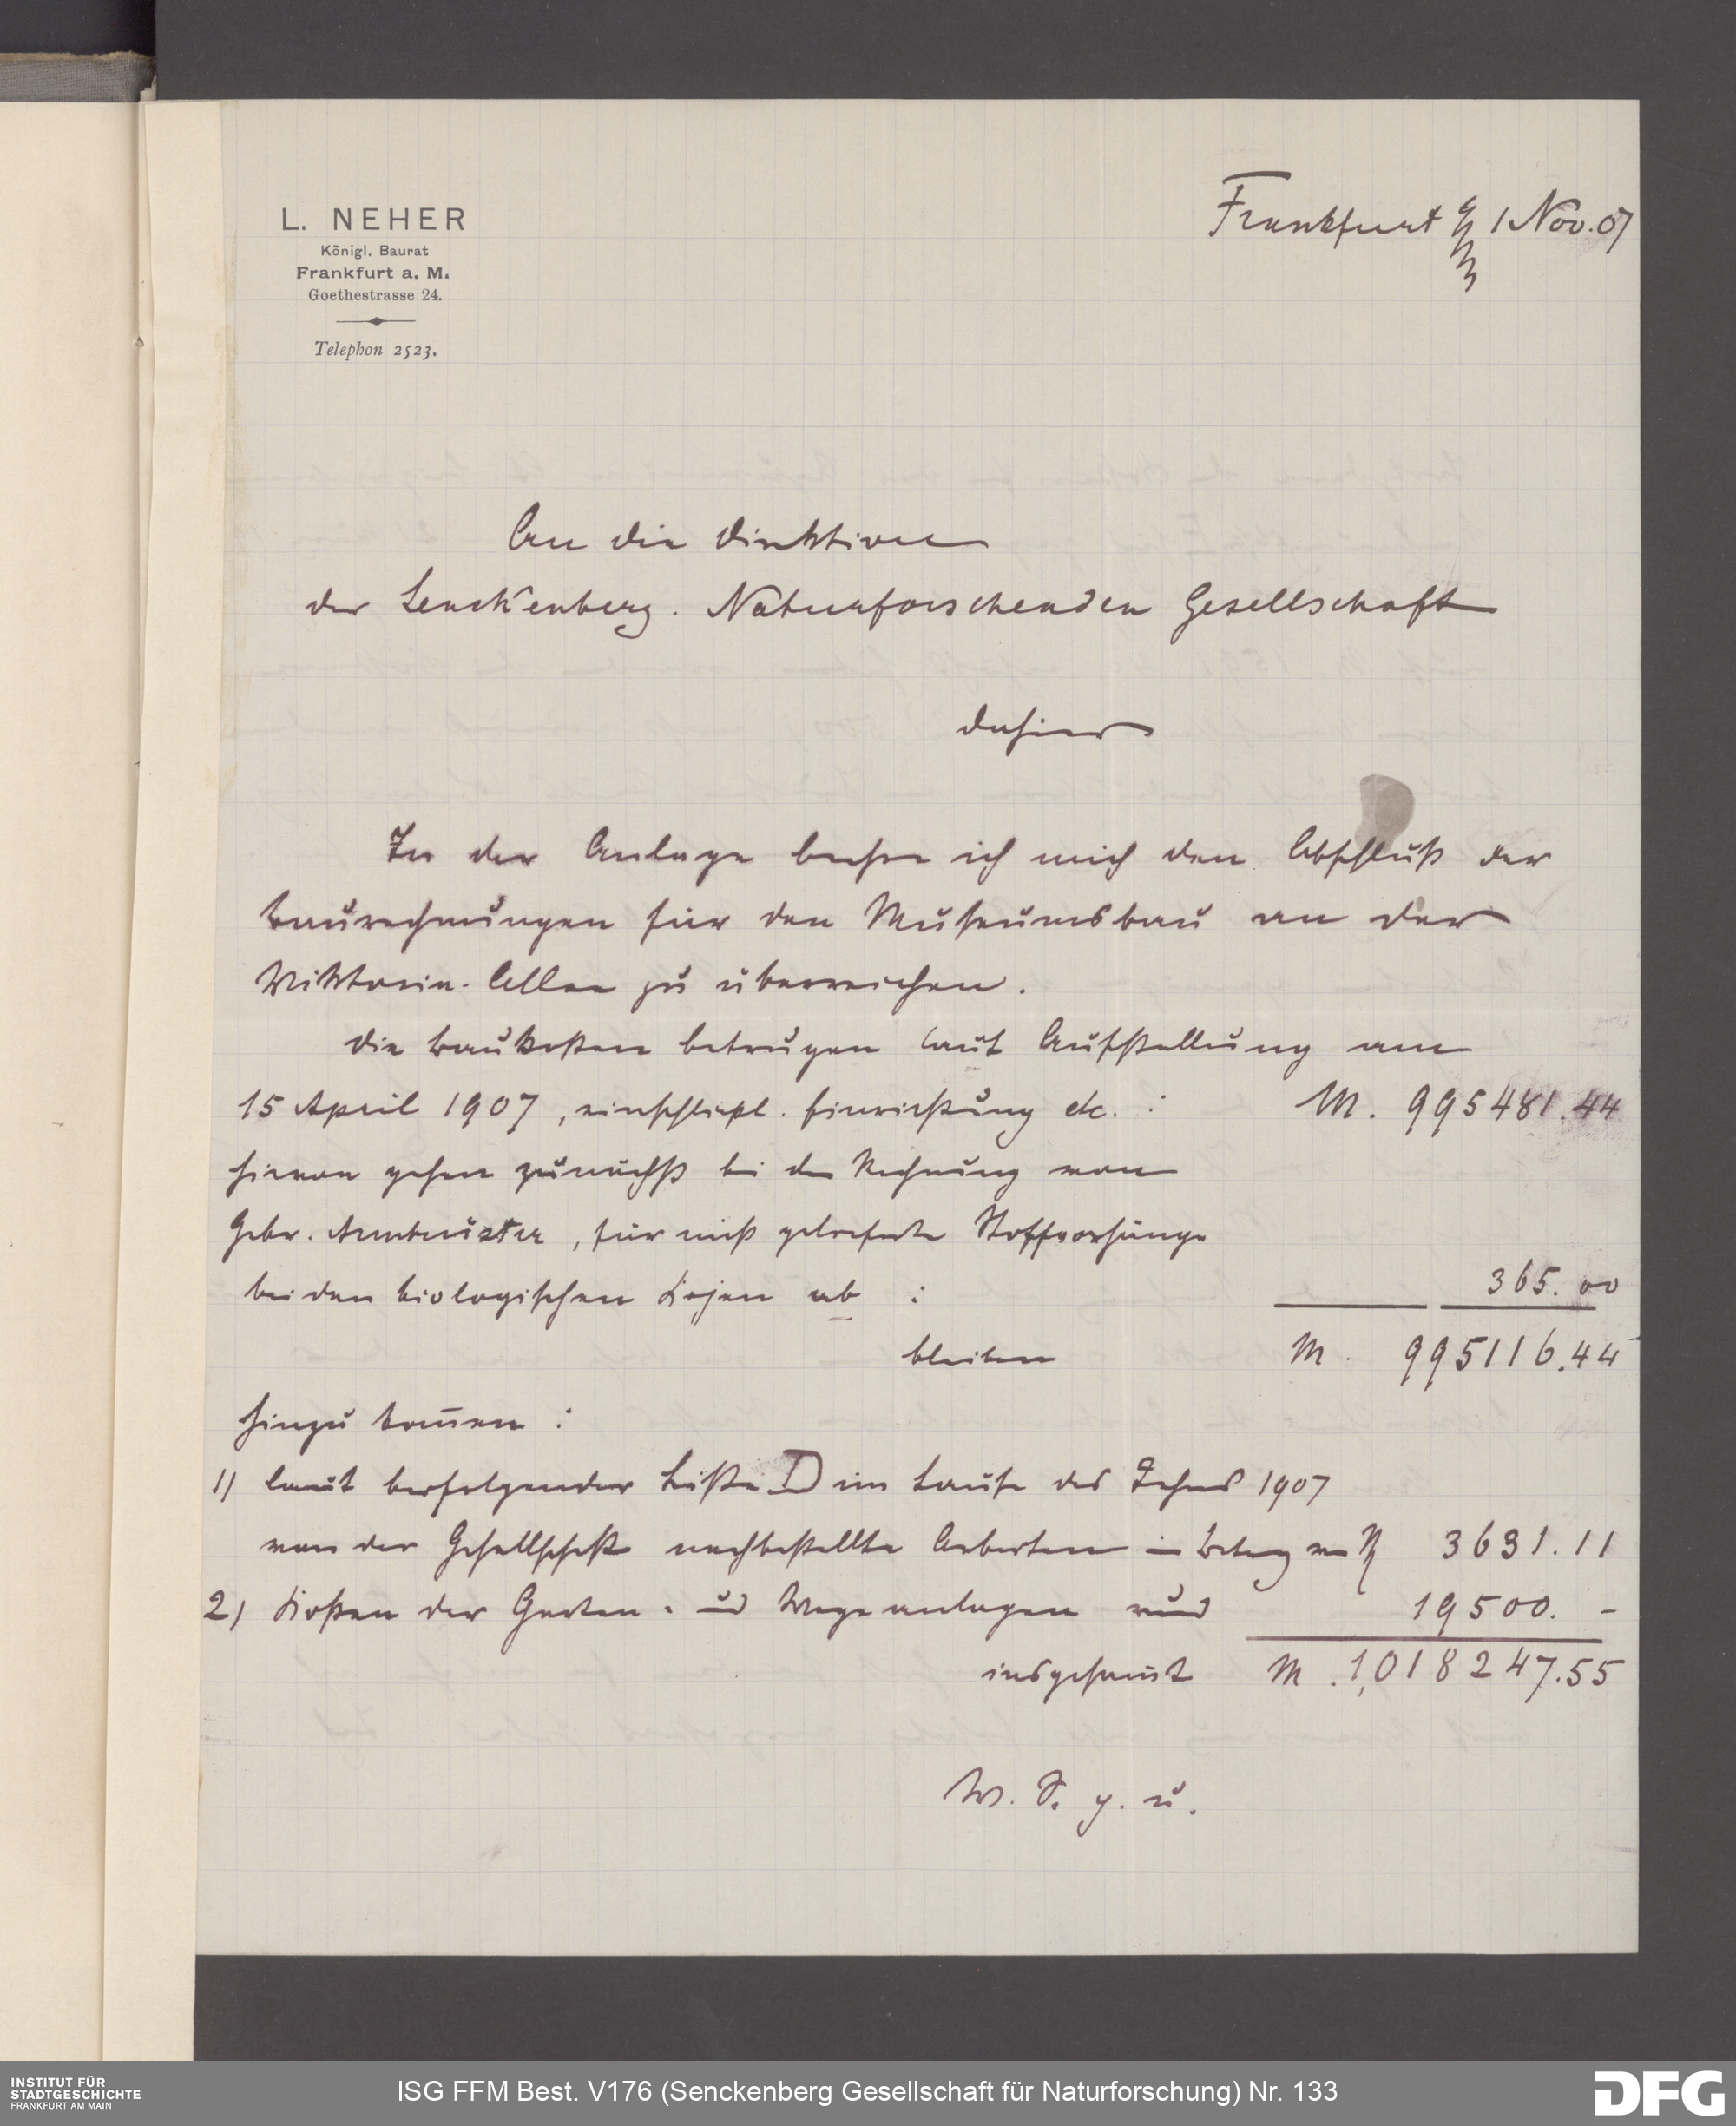 L. NEHER
Königl. Baurat
Frankfurt a. M.
Goethestrasse 24.
Telephon 2523.
Frankfurt a/M 1 Nov. 07
An die Direktion
der Senckenberg. Naturforschenden Gesellschaft
dahier
In der Anlage beehre ich mich den Abschluß der
Baurechnungen für den Museumsbau an der
Viktoria-Allee zu überreichen.
Die Baukosten betrugen laut Aufstellung am
15 April 1907, einschließl. Einrichtung etc. : M. 995481.44
hievon gehen zunächst bei der Rechnung von
Gebr. Armbrüster, für nicht gelieferte Stoffvorhänge
bei den biologischen Kojen ab : 365.00
bleiben M. 995116.44
Hinzu kom̅en :
1) laut beifolgender Liste D im Laufe des Jahres 1907
von der Gesellschaft nachbestellte Arbeiten im Betrag von M 3631.11
2) Kosten der Garten- und Wegeanlagen rund 19500. –
insgesamt M. 1,018247.55
W. S. g. u.
INSTITUT FÜR
STADTGESCHICHTE
FRANKFURT AM MAIN
ISG FFM Best. V176 (Senckenberg Gesellschaft für Naturforschung) Nr. 133
DFG